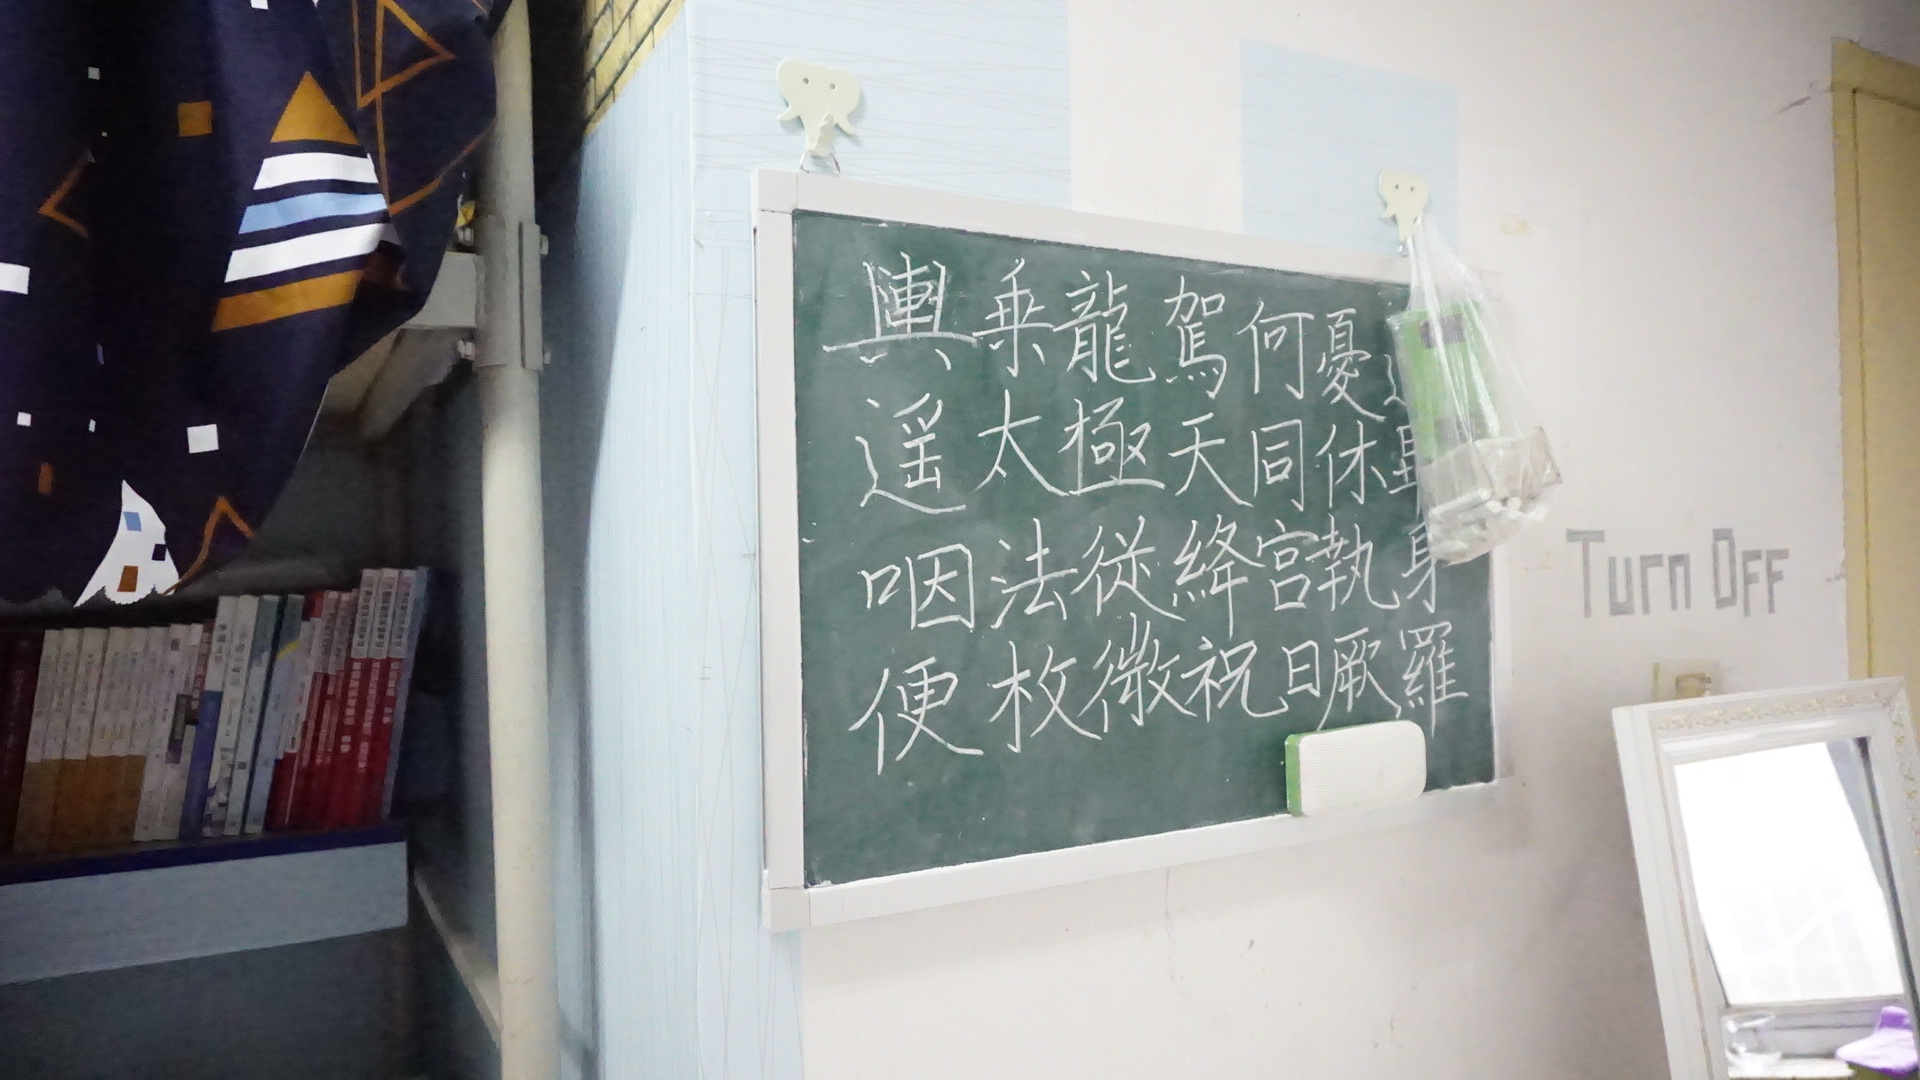 輿乗龍駕何憂
遥太極天同休
咽法從絳宮執身
便枚微祝日厥羅
Turn Off